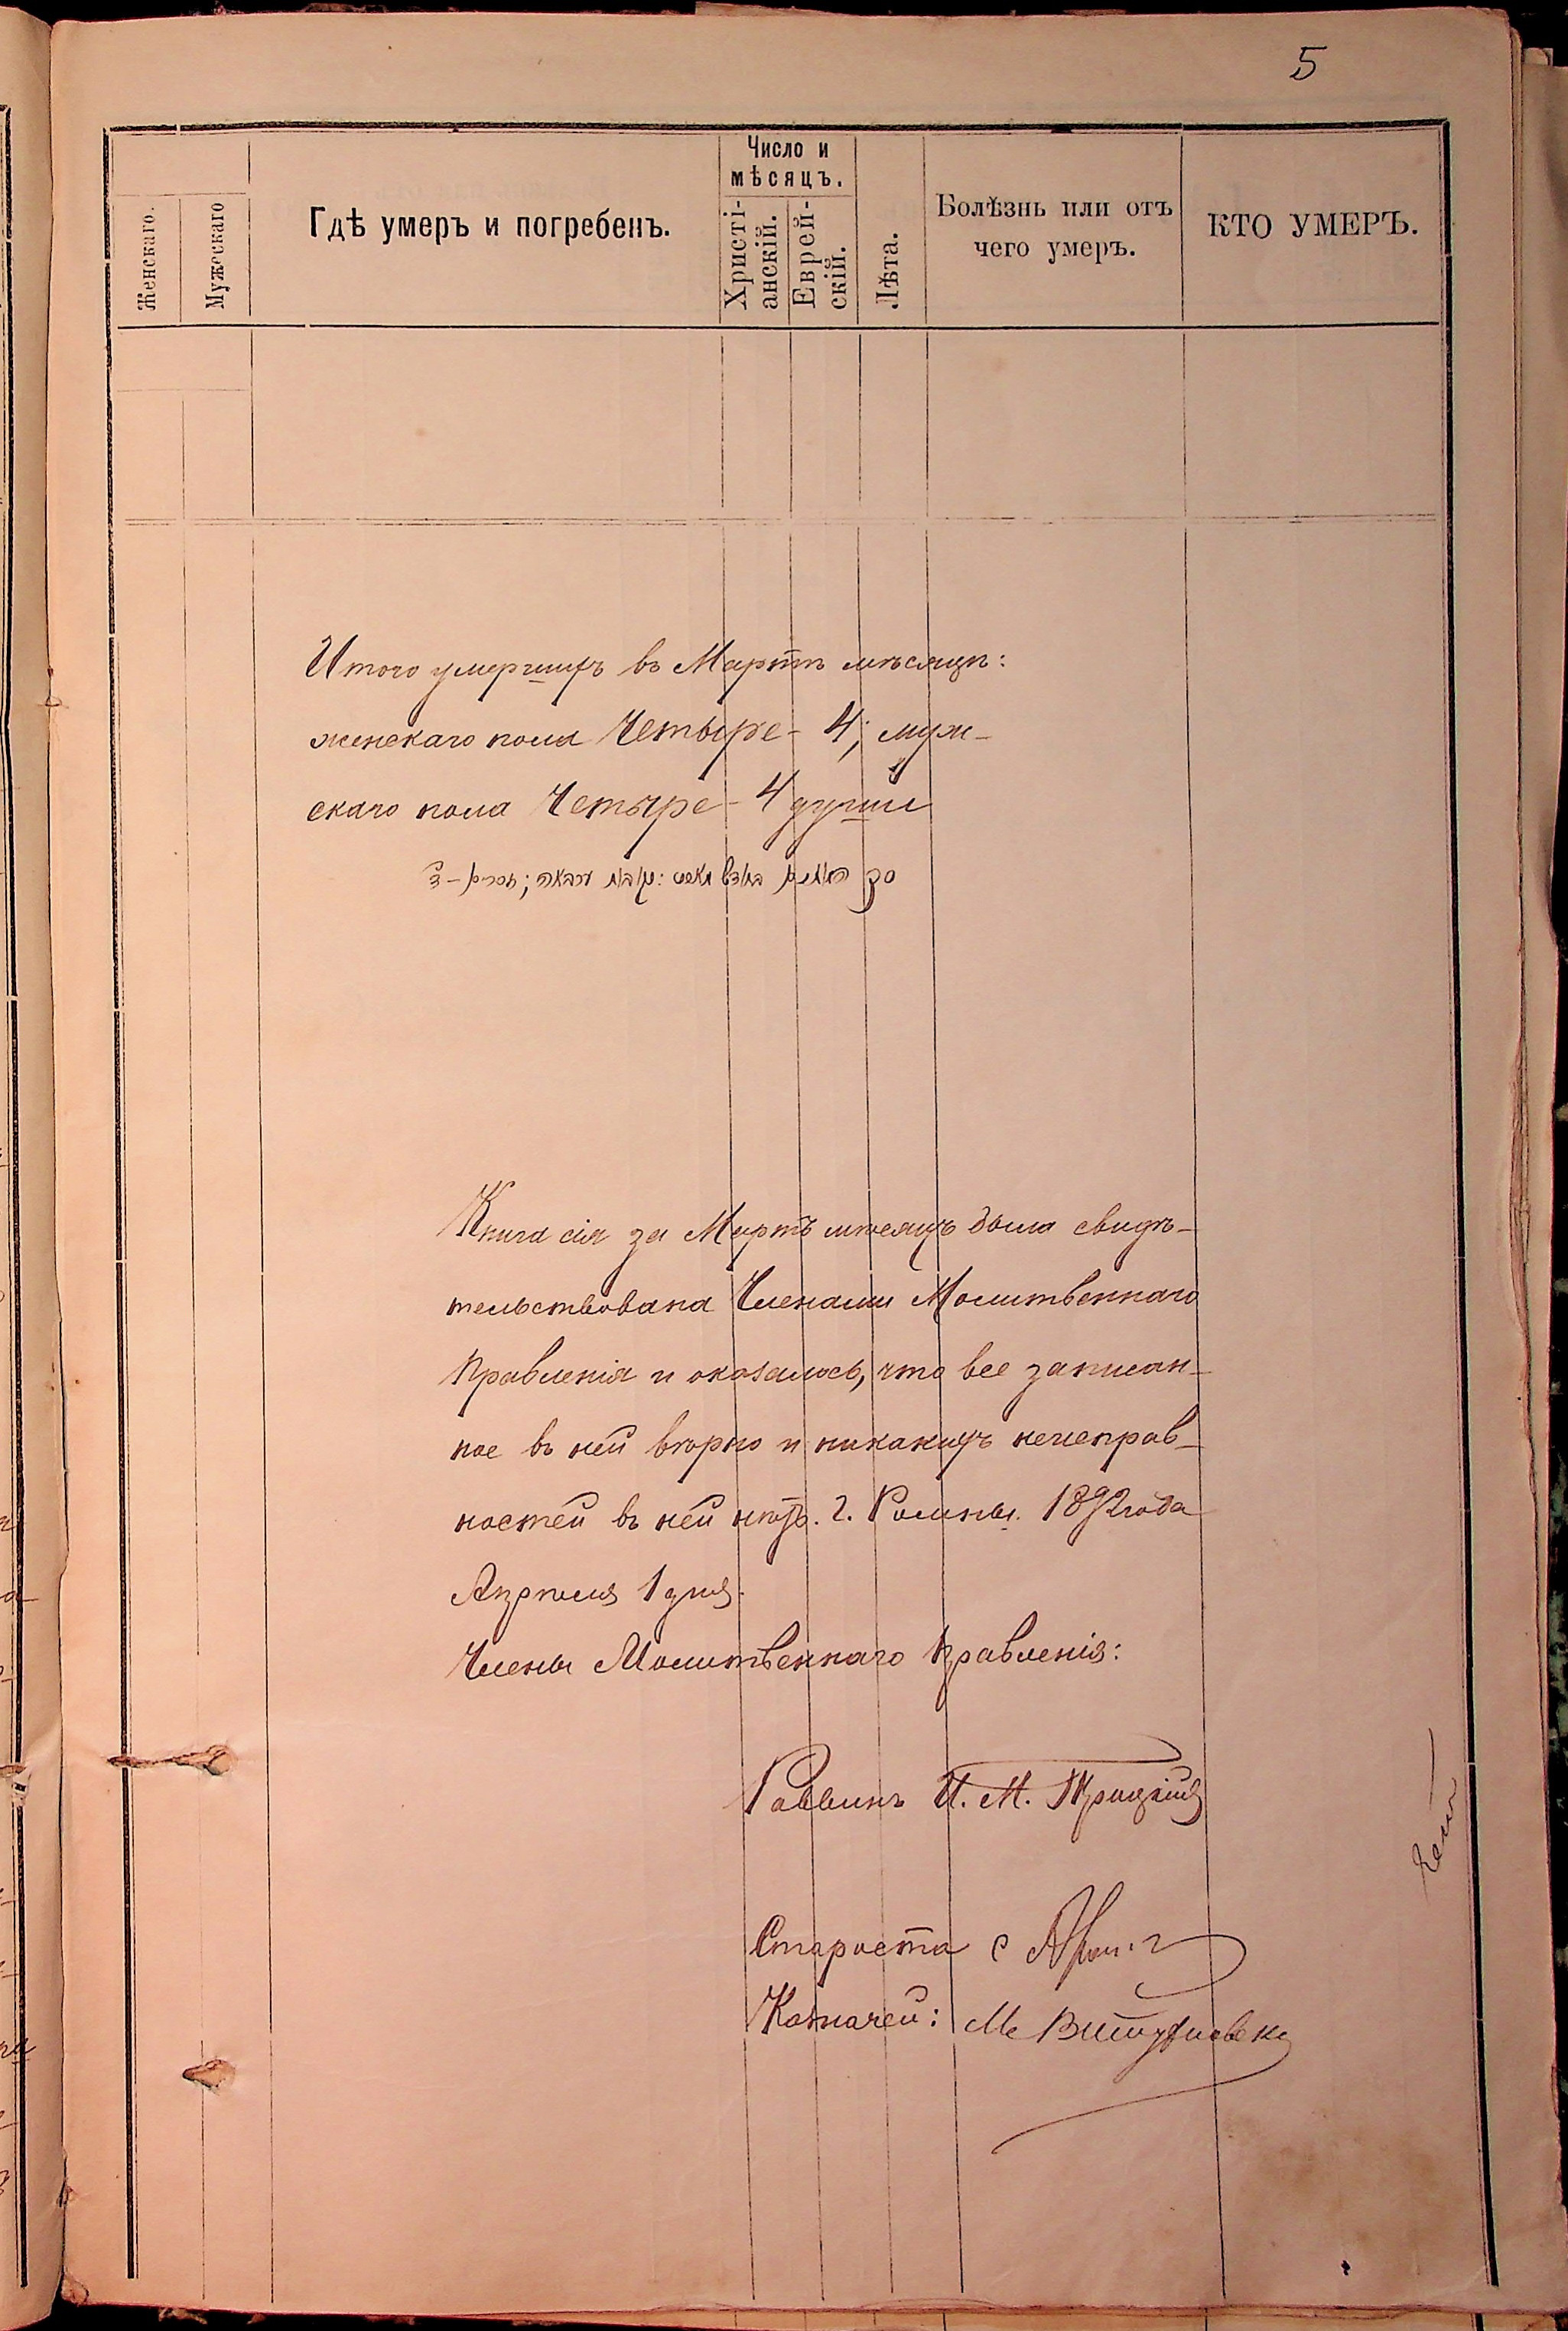 5
Число и
мѣсяцъ.
Женскаго.
Мужескаго
Гдѣ умеръ и погребенъ.
Христі-
анскій.
Еврей-
скій.
Лѣта.
Болѣзнь или отъ
чего умеръ.
КТО УМЕРЪ.
Итого умершихъ въ Мартѣ мѣсяцѣ:
женскаго пола Четыре - 4; муж-
скаго пола Четыре - 4 души
Книга сія за Мартъ мѣсяцъ была свидѣ-
тельствована Членами Молитвеннаго
Правленія и оказалось, что все записан-
ное въ ней вѣрно и никакихъ неисправ-
ностей въ ней нѣтъ. г. Ромны. 1892 года
Апрѣля 1 дня.
Члены Молитвеннаго Правленія:
Раввинъ И. М.
Староста
Казначей: М